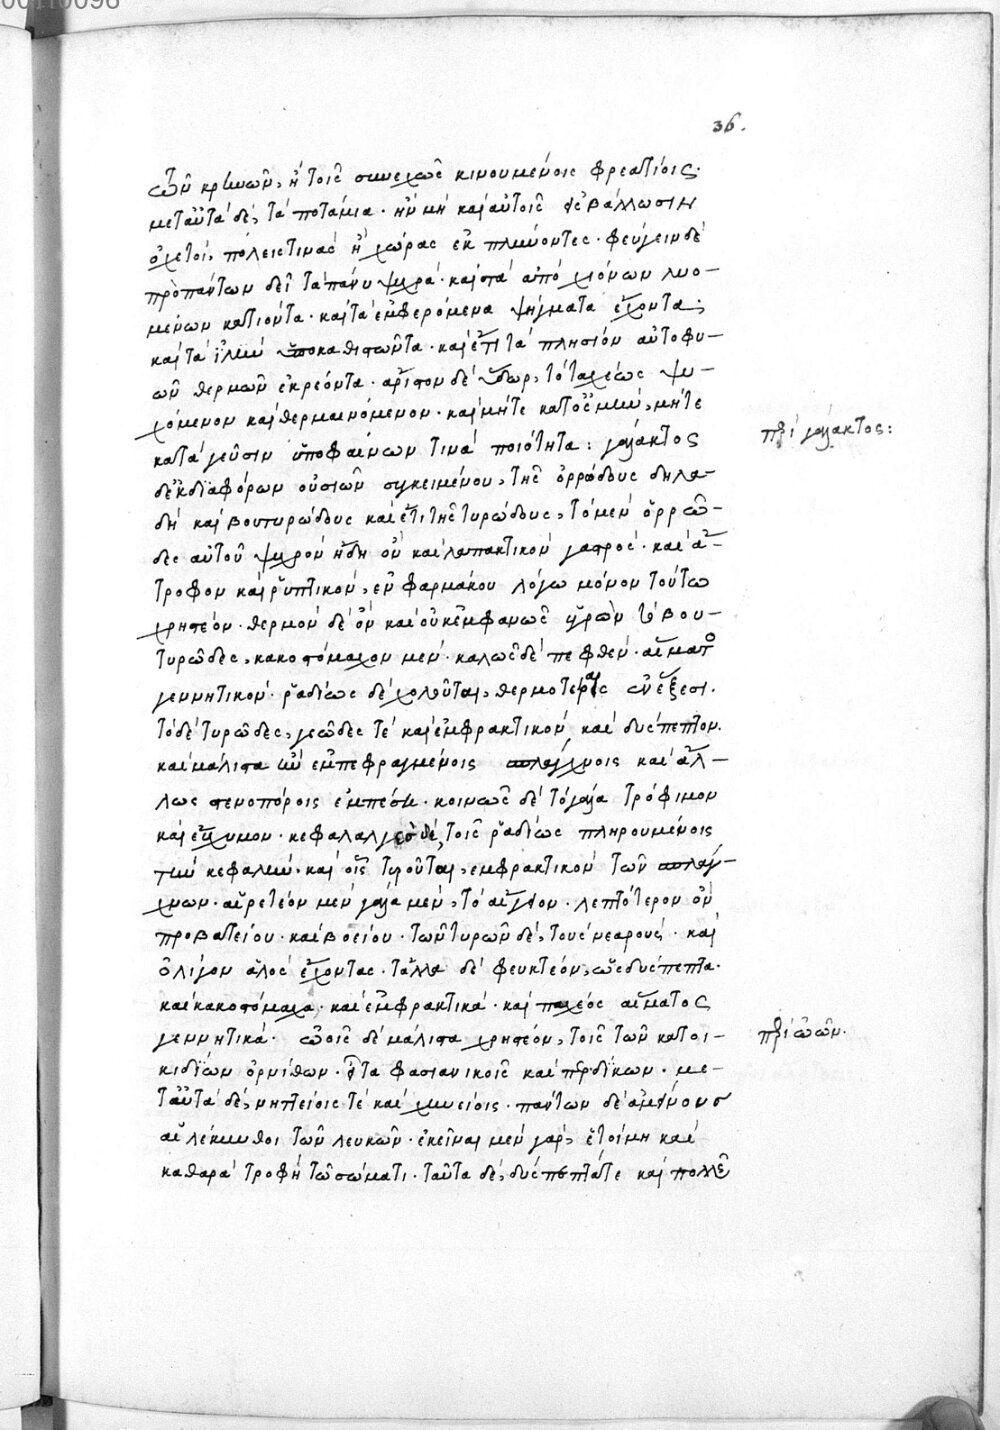 36.
τῶν κρηνῶν, ἢ τοῖς συνεχῶς κινουμένοις φρεατίοις.
μεταῦτα δὲ, τὰ ποτάμια. ἢν μὴ καὶ αὐτοῖς ἐσβάλλωσιν
ὀχετοὶ, πόλεις τινὰς ἢ χώρας ἐκπλύνοντες. φεύγειν δὲ
πρὸ πάντων δεῖ τὰ πάνυ ψυχρά. καὶ τὰ ἀπὸ χιόνων λυο-
μένων κατιόντα. καὶ τὰ ἐμφερόμενα ψήγματα ἔχοντα,
καὶ τὰ ἰλὺν ὑποκαθιστῶντα. καὶ ἔτι τὰ πλησίον αὐτοφυ-
ῶν θερμῶν ἐκρέοντα. ἄριστον δὲ ὕδωρ, τὸ ταχέως ψυ-
χόμενον καὶ θερμαινόμενον. καὶ μήτε κατ' ὀσμὴν, μήτε
κατὰ γεῦσιν ὑποφαίνων τινὰ ποιότητα: γάλακτος
περὶ γάλακτος:
δὲ ἐκ διαφόρων οὐσιῶν συγκειμένου, τῆς ὀρρώδους δηλα-
δὴ καὶ βουτυρώδους καὶ ἔτι τῆς τυρώδους, τὸ μὲν ὀρρῶ-
δες αὐτοῦ ψυχρὸν ἤδη ὂν καὶ λαπακτικὸν γαστρός. καὶ ἄ-
τροφον καὶ ῥυπτικὸν, ἐν φαρμάκου λόγω μόνον τούτω
χρηστέον. θερμὸν δὲ ὂν καὶ οὐκ ἐμφανῶς ὑγρὸν τὸ βου-
τυρῶδες, κακοστόμαχον μὲν. καλῶς δὲ πεφθὲν. αἵματος
γεννητικόν. ῥαδίως δὲ χολοῦται, θερμοτέραις ἐν ἕξεσι.
τὸ δὲ τυρῶδες, γεῶδές τε καὶ ἐμφρακτικὸν καὶ δύσπεπτον.
καὶ μάλιστα ἂν ἐμπεφραγμένοις σπλάγχνοις καὶ ἄλ-
λως στενοπόροις ἐμπέση. κοινῶς δὲ τὸ γάλα τρόφιμον
καὶ εὔχυμον. κεφαλαλγὲς δὲ, τοῖς ῥαδίως πληρουμένοις
τὴν κεφαλήν. καὶ οἷς τυροῦται, ἐμφρακτικὸν τῶν σπλάγ-
χνων. αἱρετέον μὲν γάλα μὲν, τὸ αἴγιον. λεπτότερον ὂν
προβατείου. καὶ βοείου. τῶν τυρῶν δὲ, τοὺς νεαρούς. καὶ
ὀλίγον ἁλὸς ἔχοντας. τἄλλα δὲ φευκτέον, ὡς δύσπεπτα.
καὶ κακοστόμαχα. καὶ ἐμφρακτικά. καὶ παχέος αἵματος
γεννητικά. ὠοῖς δὲ μάλιστα χρηστέον, τοῖς τῶν κατοι-
περὶ ὠῶν.
κιδίων ὀρνίθων. εἶτα φασιανικοῖς καὶ περδίκων. με-
ταῦτα δὲ, νηττείοις τὲ καὶ χηνείοις. πάντων δὲ ἀμείνους
αἱ λέκυνθοι τῶν λευκῶν. ἐκεῖναι μὲν γὰρ, ἑτοίμη καὶ
καθαρὰ τροφὴ τῶ σώματι. ταῦτα δὲ, δύσπεπτά τε καὶ πολλῆς